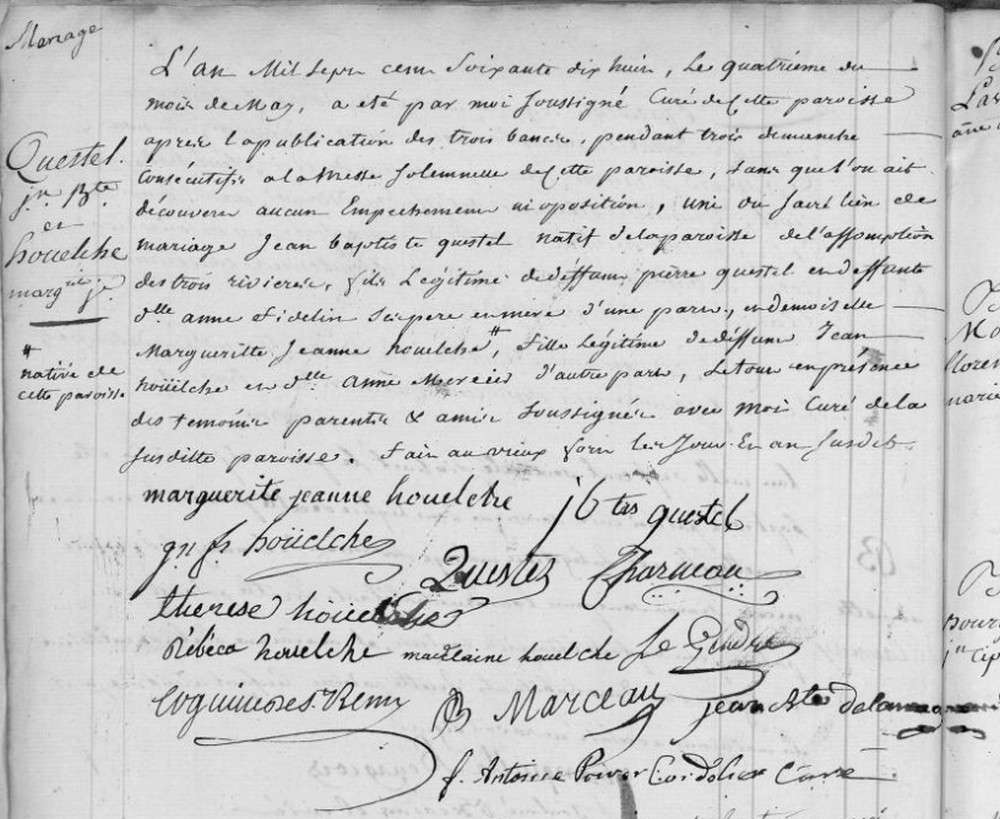 Mariage
Questel.
jn. Bte.
et
houelche
margrite je.
#
native de
cette paroisse
L'an Mil Sept cent Soixante dix huit, Le quatriéme du
mois de May, a eté par moi Soussigné Curé de Cette paroisse
après la publication des trois bancs, pendant trois dimanche
Consécutifs a la Messe Solemnelle de Cette paroisse, sans que l'on ait
découvert aucun Empechement ni oposition, uni du Sacré lien de
mariage Jean baptiste questel natif de la paroisse de l'assomption
des trois rivieres, fils Légitime de déffunt pierre questel et deffunte
dlle anne fidelin Ses pere et mere d'une part, et demoiselle
Margueritte Jeanne houelche #, fille légitime de déffunt Jean
hoüelche et dlle Anne Mercier d'autre part, Le tout en présence
des temoins parents & amis Soussignés avec Moi Curé de la
Susditte paroisse. Fait au vieux fort les Jour Et an Susdits
marguerite jeanne houelche jbtes questel
hoüelche
Questel Charueau
therese hoüelche
Rébéca houelche madelaine houelche Le Gendre
Coquille St. Remy B Marceau jean
f. Antoine Poivet Cordelier Curé